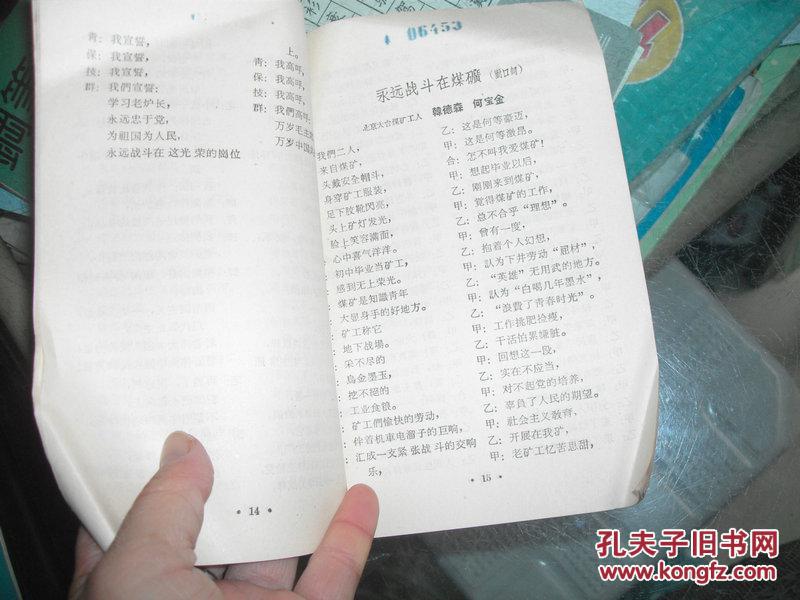 青：我宣誓，
保：我宣誓，
技：我宣誓，
群：我們宣誓：
学习老炉长，
永远忠于党，
为祖国为人民，
永远战斗在 这光 荣的崗位
上。
青：我高呼，
保：我高呼，
技：我高呼，
群：我們高呼：
万岁毛主
万岁中国
• 14 •
06453
永远战斗在煤礦（对口詞）
北京大台煤矿工人 韓德森 何宝金
我們二人，
来自煤矿，
头戴安全帽斗，
身穿矿工服装，
足下胶靴閃亮，
头上矿灯发光，
脸上笑容满面，
心中喜气洋洋。
初中毕业当矿工，
感到无上荣光。
煤矿是知識青年
大显身手的好地方。
矿工称它
地下战場。
采不尽的
烏金墨玉，
挖不絕的
工业食粮。
矿工們愉快的劳动，
伴着机車电溜子的巨响，
汇成一支紧 张战 斗的交响
乐，
乙：这是何等豪迈，
甲：这是何等激昂。
合：怎不叫我爱煤矿！
甲：想起毕业以后，
乙：刚刚来到煤矿，
甲：覚得煤矿的工作，
乙：总不合乎“理想”。
甲：曾有一度，
乙：抱着个人幻想，
甲：訣为下井劳动“屈材”，
乙：“英雄”无用武的地方。
甲：訣为“白喝几年墨水”，
乙：“浪費了青春时光”。
甲：工作挑肥捡瘦，
乙：干活怕累嫌脏。
甲：回想这一段，
乙：实在不应当，
甲：对不起党的培养，
乙：辜負了人民的期望。
甲：社会主义教育，
乙：开展在我矿，
甲：老矿工忆苦思甜，
• 15 •
孔夫子旧书网
www.kongfz.com